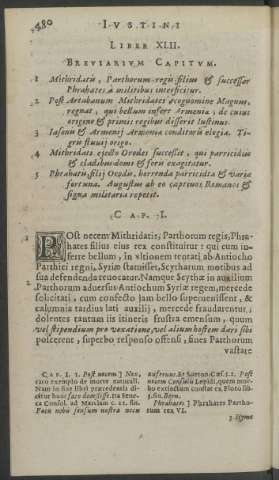 480 IVSTINI
LIBER XLII.
BREVIARIVM CAPITVM.
1 Mithridatis, Parthorum regis filius & successor
Phrahates à militibus interficitur.
2 Post Artabanum Mithridates cognomine Magnus,
regnat, qui bellum infert Armenia, de cuius
origine & primis regibus disserit Iustinus.
3 Iasonis & Armenij Armenia conditoris elogia. Ti-
gris fluuij origo.
4 Mithridati eiecto Orodes succeßit, qui parricidiis
& cladibus domi & foris exagitatur.
5 Phrahatis, filij Orodis, horrenda parricidia & varia
fortuna. Augustus ab eo captiuos Romanos &
signa militaria repetit.
CAP. I.
1 POst necem Mithridatis, Parthorum regis, Phra-
hates filius eius rex constituitur: qui cum in-
ferre bellum, in vltionem tentati ab Antiocho
Parthici regni, Syriæ statuisset, Scytharum motibus ad
sua defendenda reuocatur. Namque Scythæ in auxilium
Parthorum aduersus Antiochum Syriæ regem, mercede
solicitati, cum confecto iam bello superuenissent, &
calumnia tardius lati auxilij, mercede fraudarentur,
dolentes tantum itis itineris frustra emensum, quum
vel stipendium pro vexatione, vel alium hostem dari sibi
poscerent, superbo responso offensi, fines Parthorum
vastare
CAP. I. 1. Post necem] Nex,
raro exemplo de morte naturali.
Nam in fine libri præcedentis di-
citur
Consol. ad Marciam c. 21. fin.
auferunt.
tum
extinctum constat ex Floro lib.
Phrahates] Phrahates Partho-
rum rex VI.